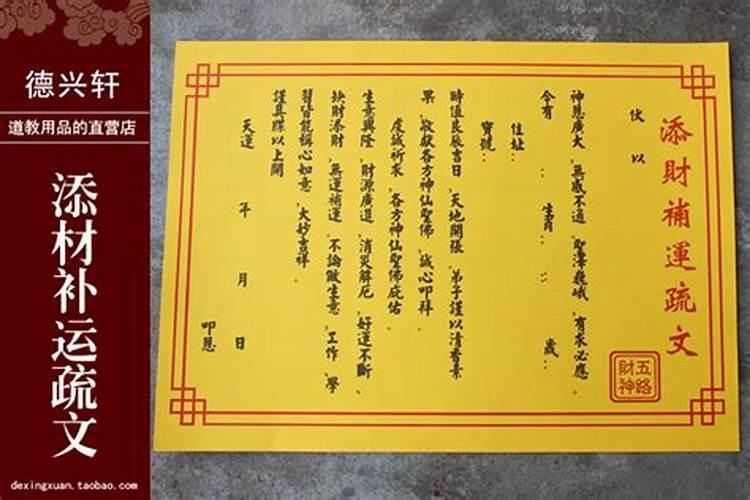 德兴轩
道教用品的直营店
添材补运疏文
dexingxuan.taobao.com
添財補運疏文
五路
財神
伏以
神恩廣大、無感不通、聖澤巍峨、有求必應。
今有 : 生肖: : 歲:
住址:
寶號:
時值良辰吉日、天地開張、弟子謹以清香素
果、敬献各方神仙聖佛、誠心叩拜。
虔誠祈求、各方神仙聖佛庇佑。
生意興隆、財源廣進、消災解厄、好運不斷、
缺財添財、無運補運、不論做生意、工作、學
習皆能稱心如意、大妙吉祥。
謹具牒以上聞
天運 年 月 日
叩恩